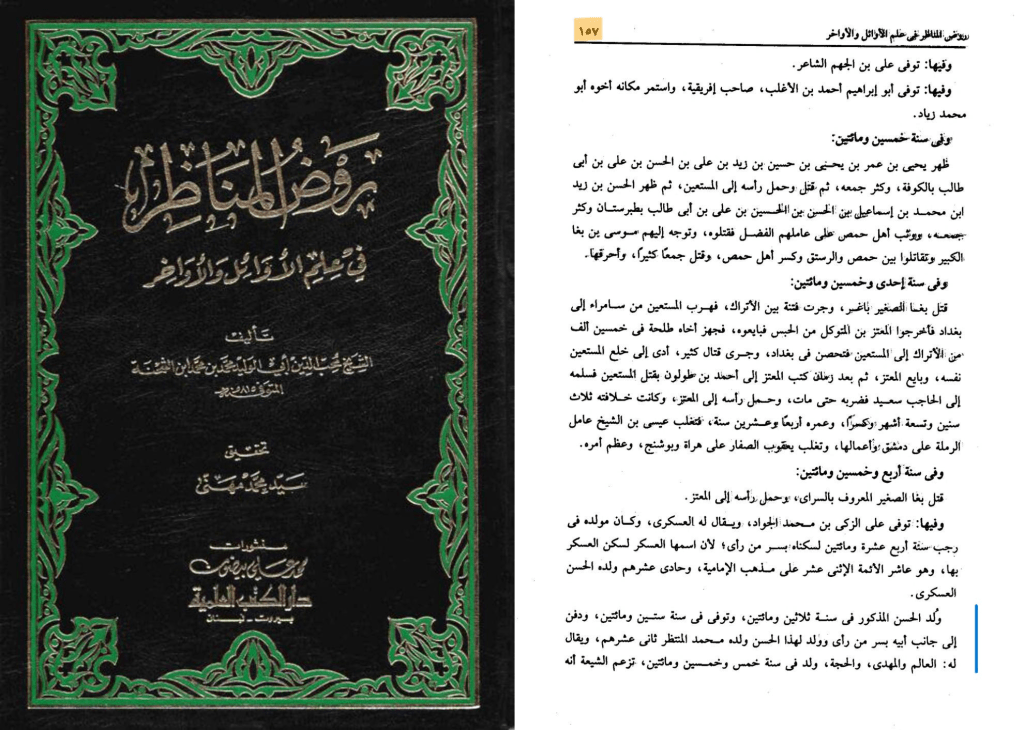 روض المناظر
في علم الأوائل والأواخر
تأليف
الشيخ محب الدين أبي الوليد محمد بن محمد ابن الشحنة
المتوفى ٨١٥ هـ
تحقيق
سيد محمد مهنى
منشورات
محمد علي بيضون
دار الكتب العلمية
بيروت - لبنان
روض المناظر فى علم الأوائل والأواخر
١٥٧
وفيها: توفى على بن الجهم الشاعر.
وفيها: توفى أبو إبراهيم أحمد بن الأغلب، صاحب إفريقية، واستمر مكانه أخوه أبو
محمد زياد.
وفى سنة خمسين ومائتين:
ظهر يحيى بن عمر بن يحيى بن حسين بن زيد بن على بن الحسن بن على بن أبى
طالب بالكوفة، وكثر جمعه، ثم قتل وحمل رأسه إلى المستعين، ثم ظهر الحسن بن زيد
ابن محمد بن إسماعيل بن الحسن بن الحسين بن على بن أبى طالب بطبرستان وكثر
جمعه، ووثب أهل حمص على عاملهم الفضل فقتلوه، وتوجه إليهم موسى بن بغا
الكبير وتقاتلوا بين حمص والرستق وكسر أهل حمص، وقتل جمعًا كثيرًا، وأحرقها.
وفى سنة إحدى وخمسين ومائتين:
قتل بغا الصغير باغر، وجرت فتنة بين الأتراك، فهرب المستعين من سامراء إلى
بغداد فأخرجوا المعتز بن المتوكل من الحبس فبايعوه، فجهز أخاه طلحة فى خمسين ألف
من الأتراك إلى المستعين فتحصن فى بغداد، وجرى قتال كثير، أدى إلى خلع المستعين
نفسه، وبايع المعتز، ثم بعد زمان كتب المعتز إلى أحمد بن طولون بقتل المستعين فسلمه
إلى الحاجب سعيد فضربه حتى مات، وحمل رأسه إلى المعتز، وكانت خلافته ثلاث
سنين وتسعة أشهر وكسرًا، وعمره أربعًا وعشرين سنة، فتغلب عيسى بن الشيخ عامل
الرملة على دمشق وأعمالها، وتغلب يعقوب الصفار على هراة وبوشنج، وعظم أمره.
وفى سنة أربع وخمسين ومائتين:
قتل بغا الصغير المعروف بالسراى، وحمل رأسه إلى المعتز.
وفيها: توفى على الزكى بن محمد الجواد، ويقال له العسكرى، وكان مولده فى
رجب سنة أربع عشرة ومائتين لسكناه بسر من رأى؛ لأن اسمها العسكر لسكن العسكر
بها، وهو عاشر الأئمة الإثنى عشر على مذهب الإمامية، وحادى عشرهم ولده الحسن
العسكرى.
ولد الحسن المذكور فى سنة ثلاثين ومائتين، وتوفى فى سنة ستين ومائتين، ودفن
إلى جانب أبيه بسر من رأى وولد لهذا الحسن ولده محمد المنتظر ثانى عشرهم، ويقال
له: العالم والمهدى، والحجة، ولد فى سنة خمس وخمسين ومائتين، تزعم الشيعة أنه